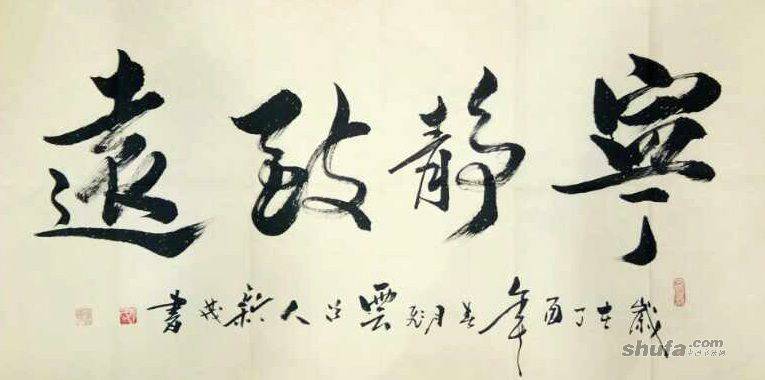 寧靜致遠
歲在丁酉年春月彩雲道人新茂書
shufa.com